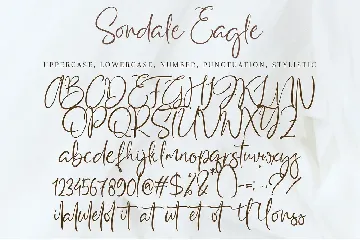 Sondale Eagle
UPPERCASE, LOWERCASE, NUMBER, PUNCTUATION, STYLISTIC
ABCDEFGHIJKLMN
OPQRSTUVWXYZ
abcdefghijklmnopqrstuvwxyz
1234567890!@#$%&*()-=:;??
it at ut et ot tl